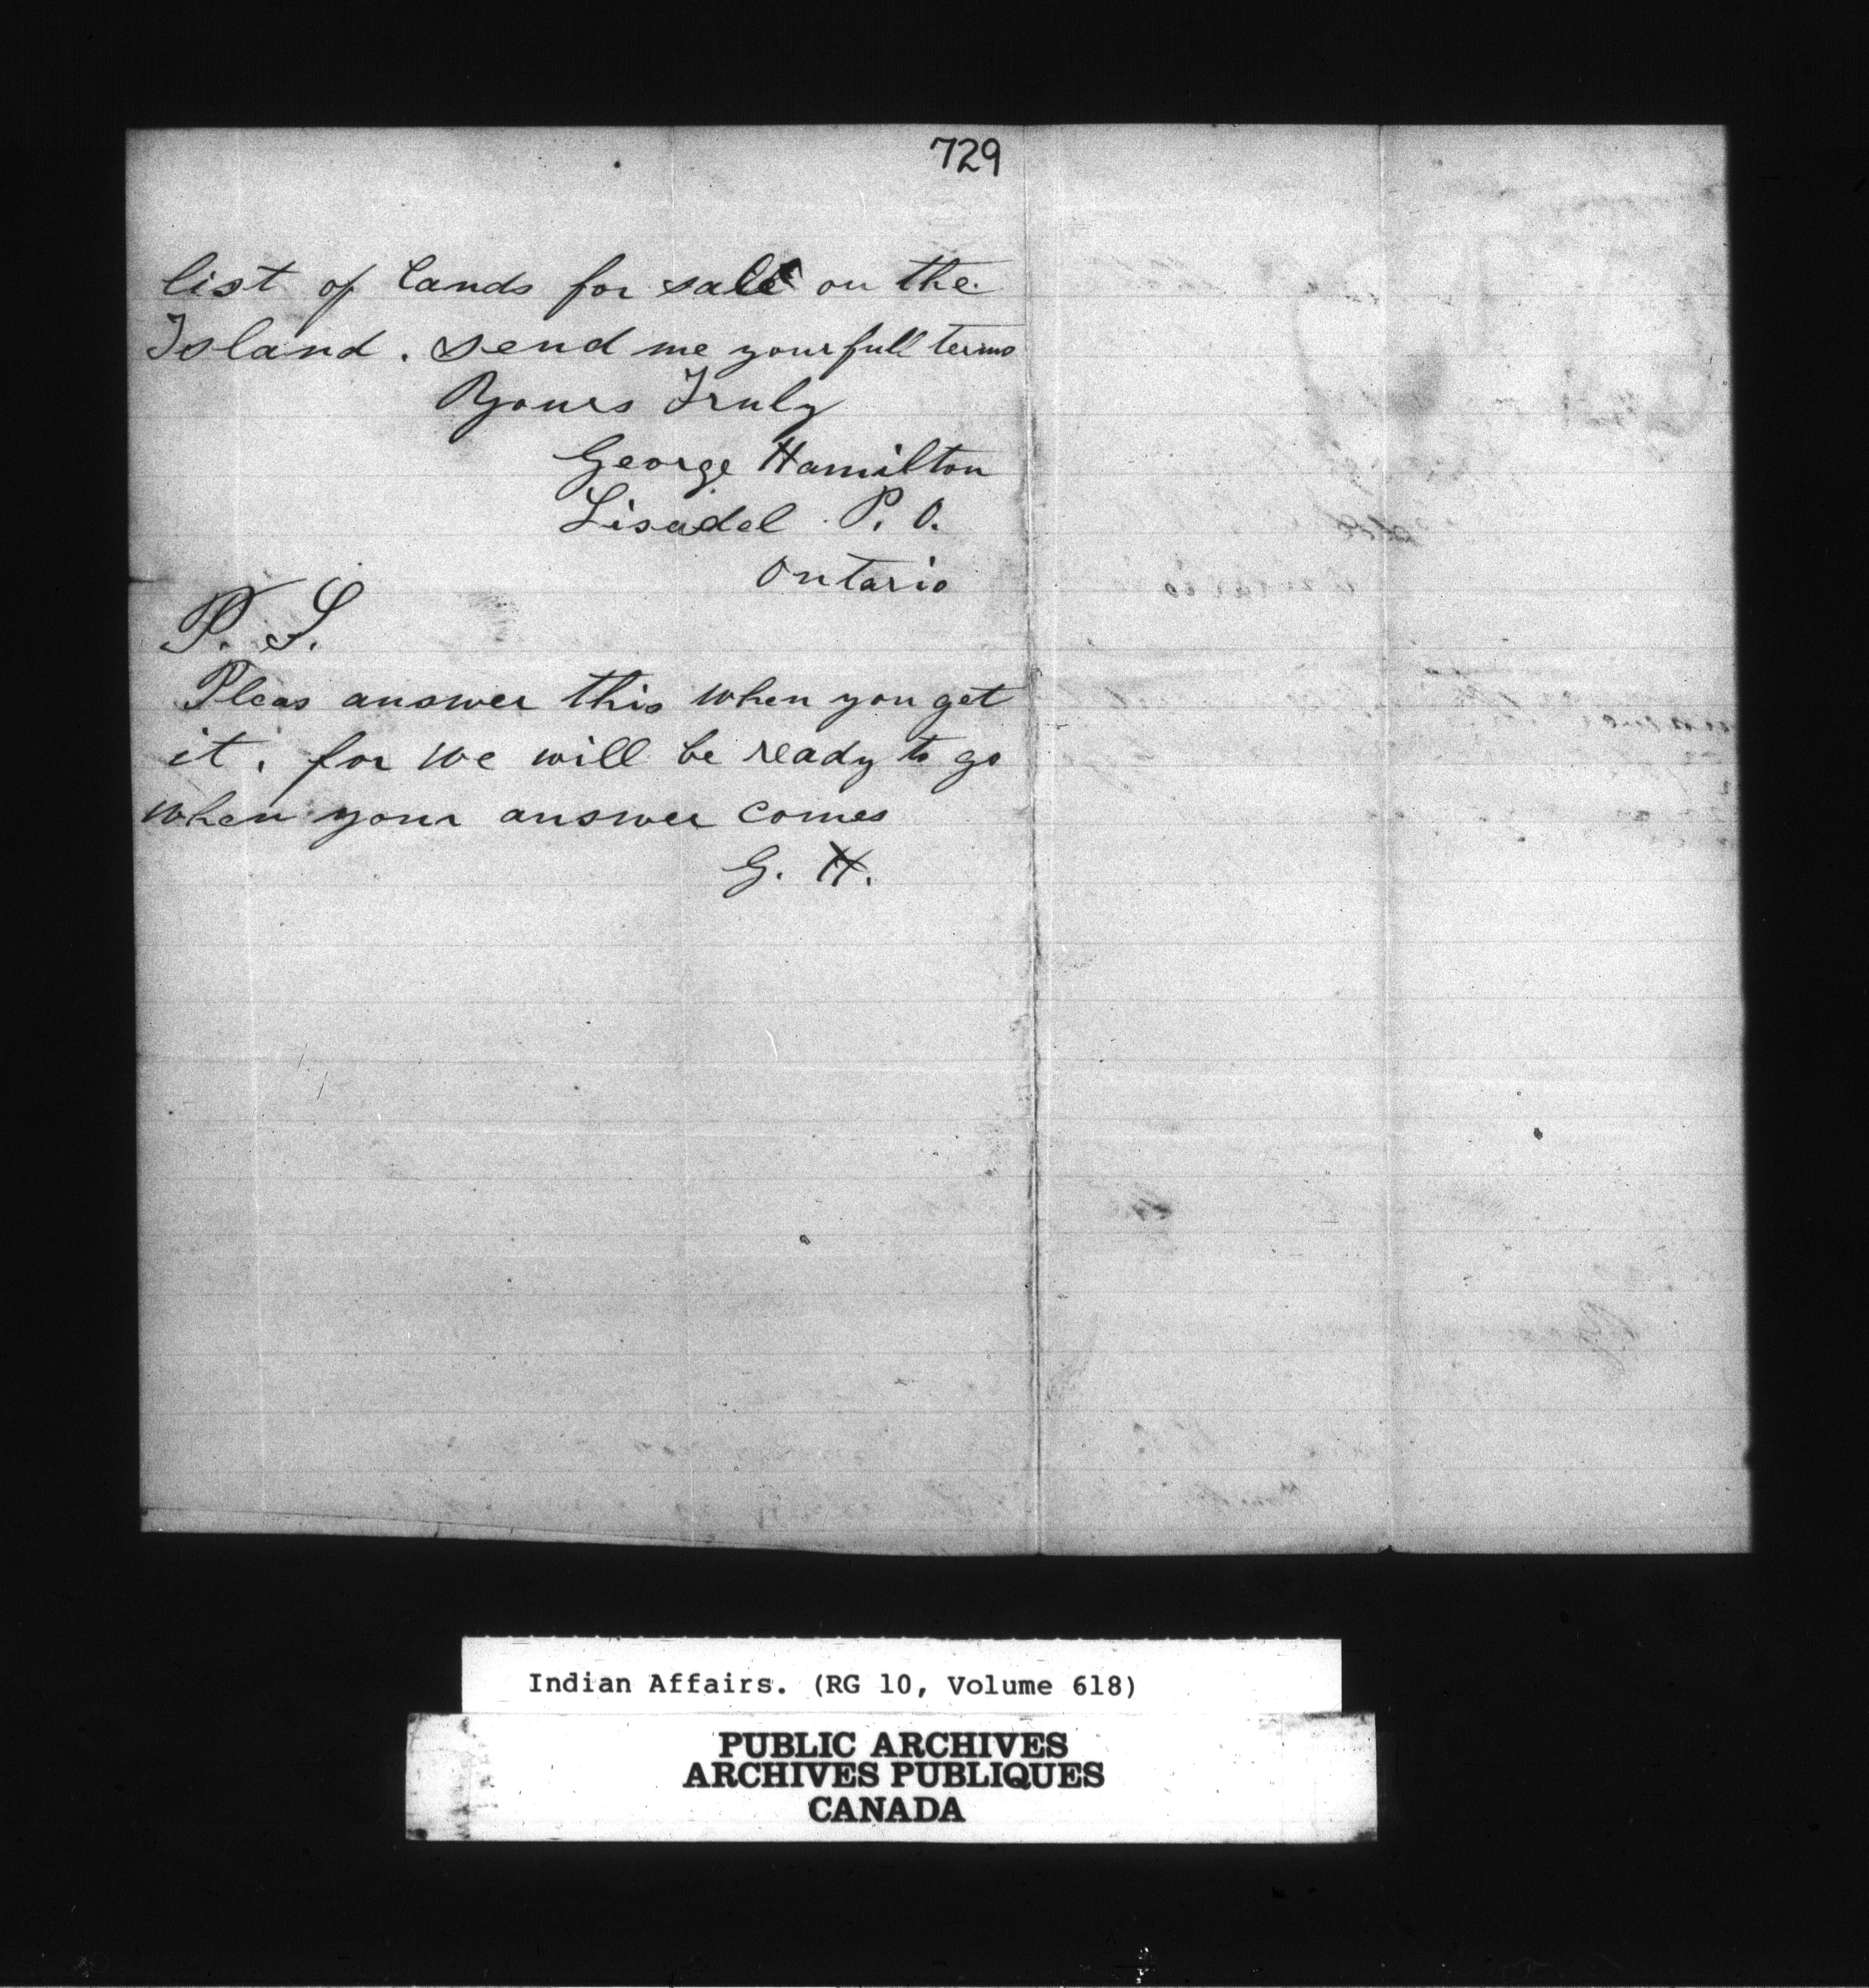 729
list of lands for sale on the
Island. send me your full terms
Yours Truly
George Hamilton
Lisadel P. O.
Ontario
P. S.
Pleas answer this when you get
it. for we will be ready to go
when your answer comes
G. H.
Indian Affairs. (RG 10, Volume 618)
PUBLIC ARCHIVES
ARCHIVES PUBLIQUES
CANADA